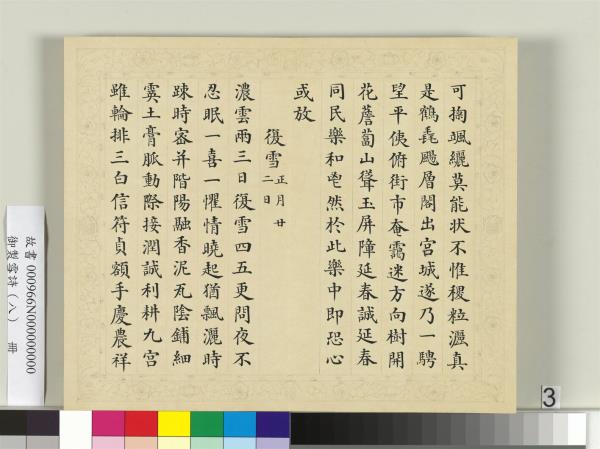 可掬颯纚莫能状不惟稷粒瀝真
是鶴毳飈層閣出宮城遂乃一騁
望平俯街市奄靄迷方向樹開
花簷蔔山聳玉屏障延春誠延春
同民樂和邕然於此樂中即恐心
或放
復雪 正月廿二日
濃雲兩三日復雪四五更問夜不
忍眠一喜一懼情曉起猶飄灑時
踈時密并階陽融香泥瓦陰鋪細
霙土膏脈動際接潤誠利耕九宮
雖輪排三白信符貞額手慶農祥
故書 000966N000000000
御製雪詩（八） 冊
3